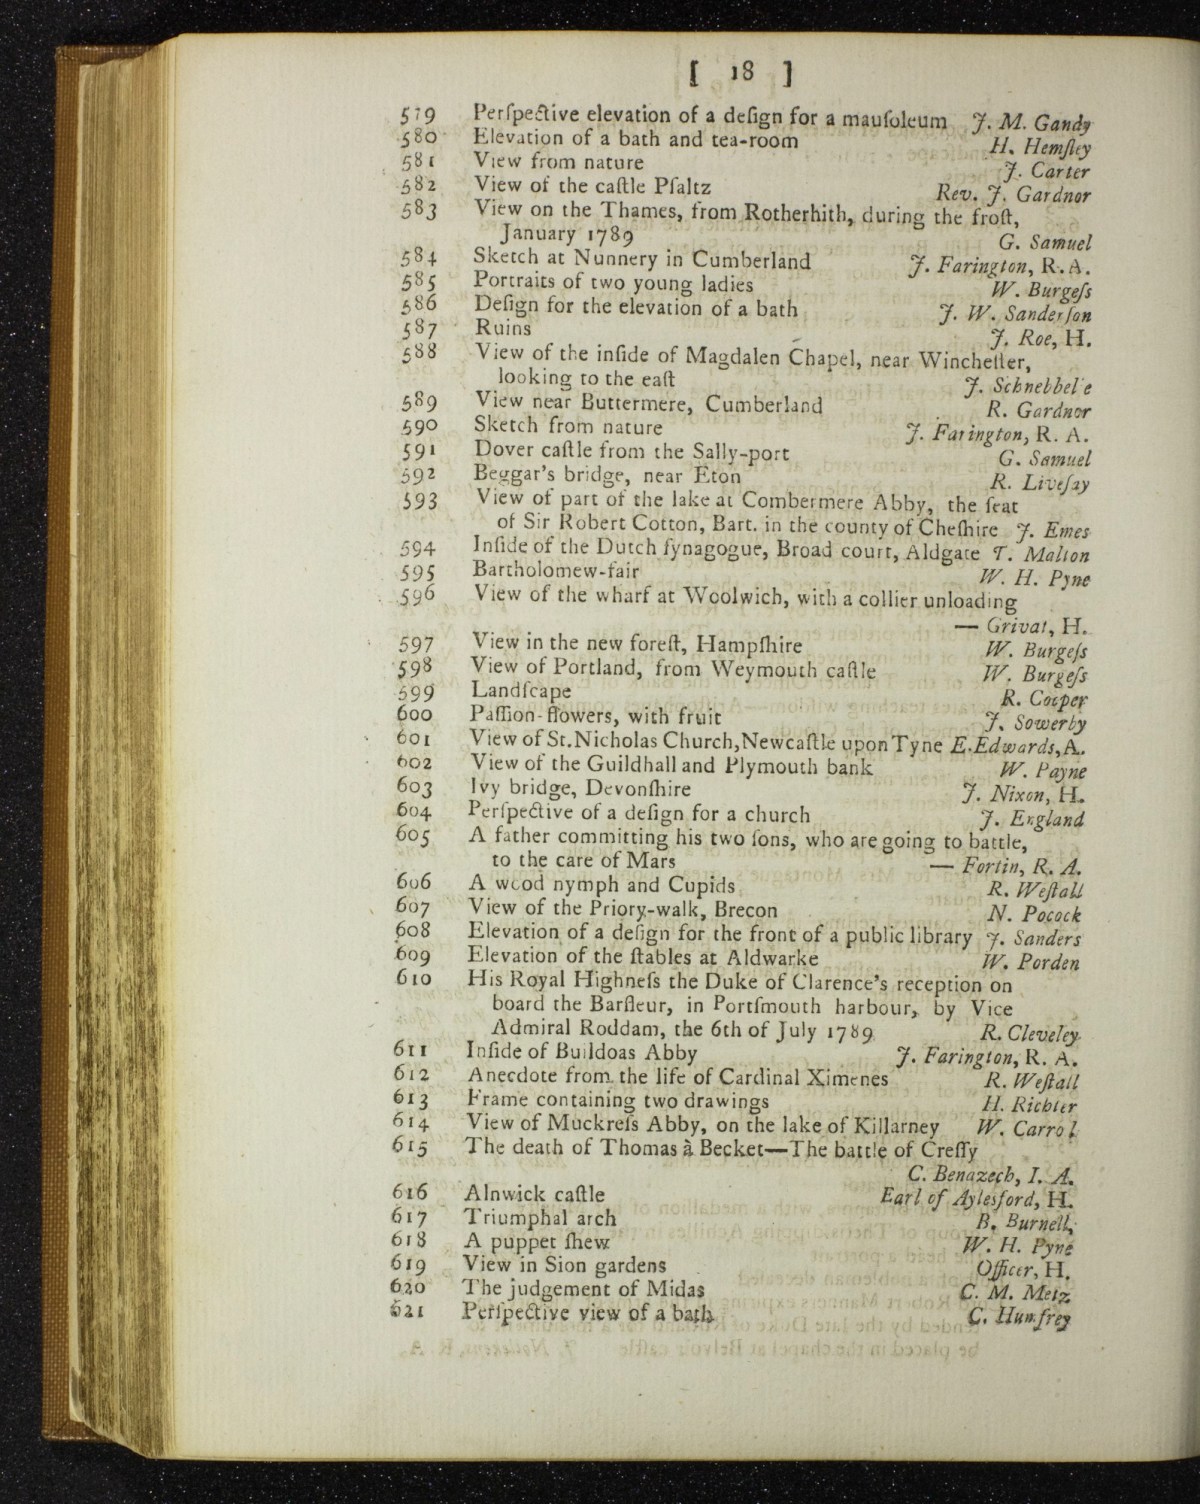 [ 18 ]
579 Perſpective elevation of a deſign for a mauſoleum J. M. Gandy
580 Elevation of a bath and tea-room H. Hemſley
581 View from nature J. Carter
582 View of the caſtle Pſaltz Rev. J. Gardnor
583 View on the Thames, from Rotherhith, during the froſt,
January 1789 G. Samuel
584 Sketch at Nunnery in Cumberland J. Farington, R. A.
585 Portraits of two young ladies W. Burgeſs
586 Deſign for the elevation of a bath J. W. Sanderſon
587 Ruins J. Roe, H.
588 View of the inſide of Magdalen Chapel, near Wincheſter,
looking to the eaſt J. Schnebbelie
589 View near Buttermere, Cumberland R. Gardnor
590 Sketch from nature J. Farington, R. A.
591 Dover caſtle from the Sally-port G. Samuel
592 Beggar's bridge, near Eton R. Liveſay
593 View of part of the lake at Combermere Abby, the ſeat
of Sir Robert Cotton, Bart. in the county of Cheſhire J. Emes
594 Inſide of the Dutch ſynagogue, Broad court, Aldgate T. Malton
595 Bartholomew-fair W. H. Pyne
596 View of the wharf at Woolwich, with a collier unloading
— Grivat, H.
597 View in the new foreſt, Hampſhire W. Burgeſs
598 View of Portland, from Weymouth caſtle W. Burgeſs
599 Landſcape R. Cooper
600 Paſſion-flowers, with fruit J. Sowerby
601 View of St. Nicholas Church, Newcaſtle upon Tyne E. Edwards, A.
602 View of the Guildhall and Plymouth bank W. Payne
603 Ivy bridge, Devonſhire J. Nixon, H.
604 Perſpective of a deſign for a church J. England
605 A father committing his two ſons, who are going to battle,
to the care of Mars — Fortin, R. A.
606 A wood nymph and Cupids R. Weſtall
607 View of the Priory-walk, Brecon N. Pocock
608 Elevation of a deſign for the front of a public library J. Sanders
609 Elevation of the ſtables at Aldwarke W. Porden
610 His Royal Highneſs the Duke of Clarence's reception on
board the Barfleur, in Portſmouth harbour, by Vice
Admiral Roddam, the 6th of July 1789 R. Cleveley
611 Inſide of Buildoas Abby J. Farington, R. A.
612 Anecdote from the life of Cardinal Ximenes R. Weſtall
613 Frame containing two drawings H. Richter
614 View of Muckreſs Abby, on the lake of Killarney W. Carrol
615 The death of Thomas à Becket—The battle of Creſſy
C. Benazech, I. A.
616 Alnwick caſtle Earl of Aylesford, H.
617 Triumphal arch B. Burnell,
618 A puppet ſhew W. H. Pyne
619 View in Sion gardens Officer, H.
620 The judgement of Midas C. M. Metz
621 Perſpective view of a bath C. Humfrey